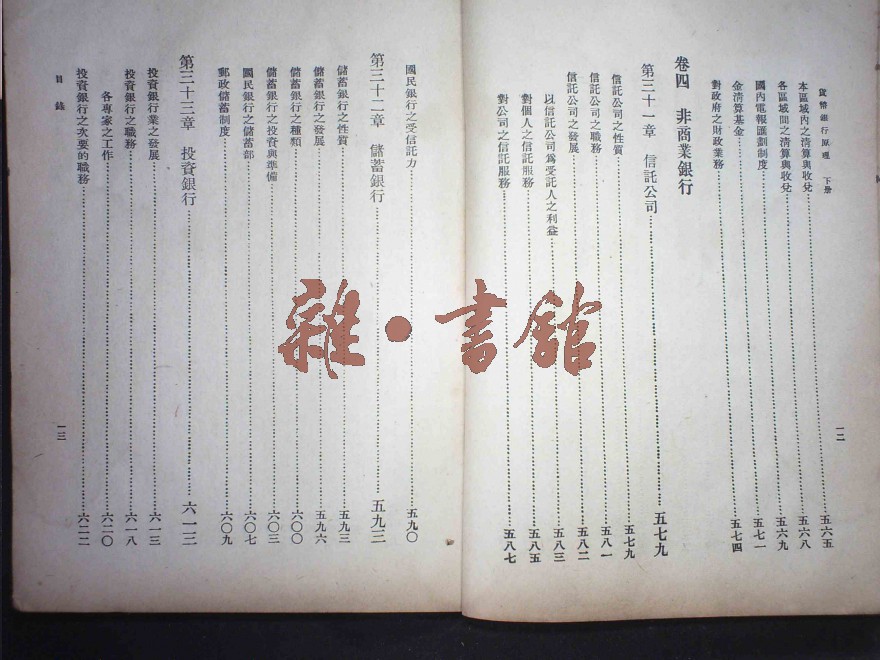 貨幣銀行原理 下册
一二
本區域內之清算與收兌……五六五
各區域間之清算與收兌……五六八
國內電報匯劃制度……五六九
金清算基金……五七一
對政府之財政業務……五七四
卷四 非商業銀行
第三十一章 信託公司……五七九
信託公司之性質……五七九
信託公司之職務……五八一
信託公司之發展……五八二
以信託公司爲受託人之利益……五八三
對個人之信託服務……五八五
對公司之信託服務……五八七
國民銀行之受信託力……五九〇
第三十二章 儲蓄銀行……五九三
儲蓄銀行之性質……五九三
儲蓄銀行之發展……五九六
儲蓄銀行之種類……六〇〇
儲蓄銀行之投資與準備……六〇三
國民銀行之儲蓄部……六〇七
郵政儲蓄制度……六〇九
第三十三章 投資銀行……六一三
投資銀行業之發展……六一三
投資銀行之職務……六一八
各專家之工作……六二〇
投資銀行之次要的職務……六二二
目錄
一三
雜·書館